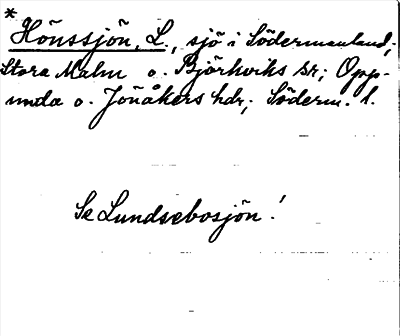 *
Hönssjön, L., sjö i Södermanland;
Stora Malm o. Björkviks sr; Opp-
unda o. Jönåkers hdr; Söderm. l.
Se Lundsebosjön!